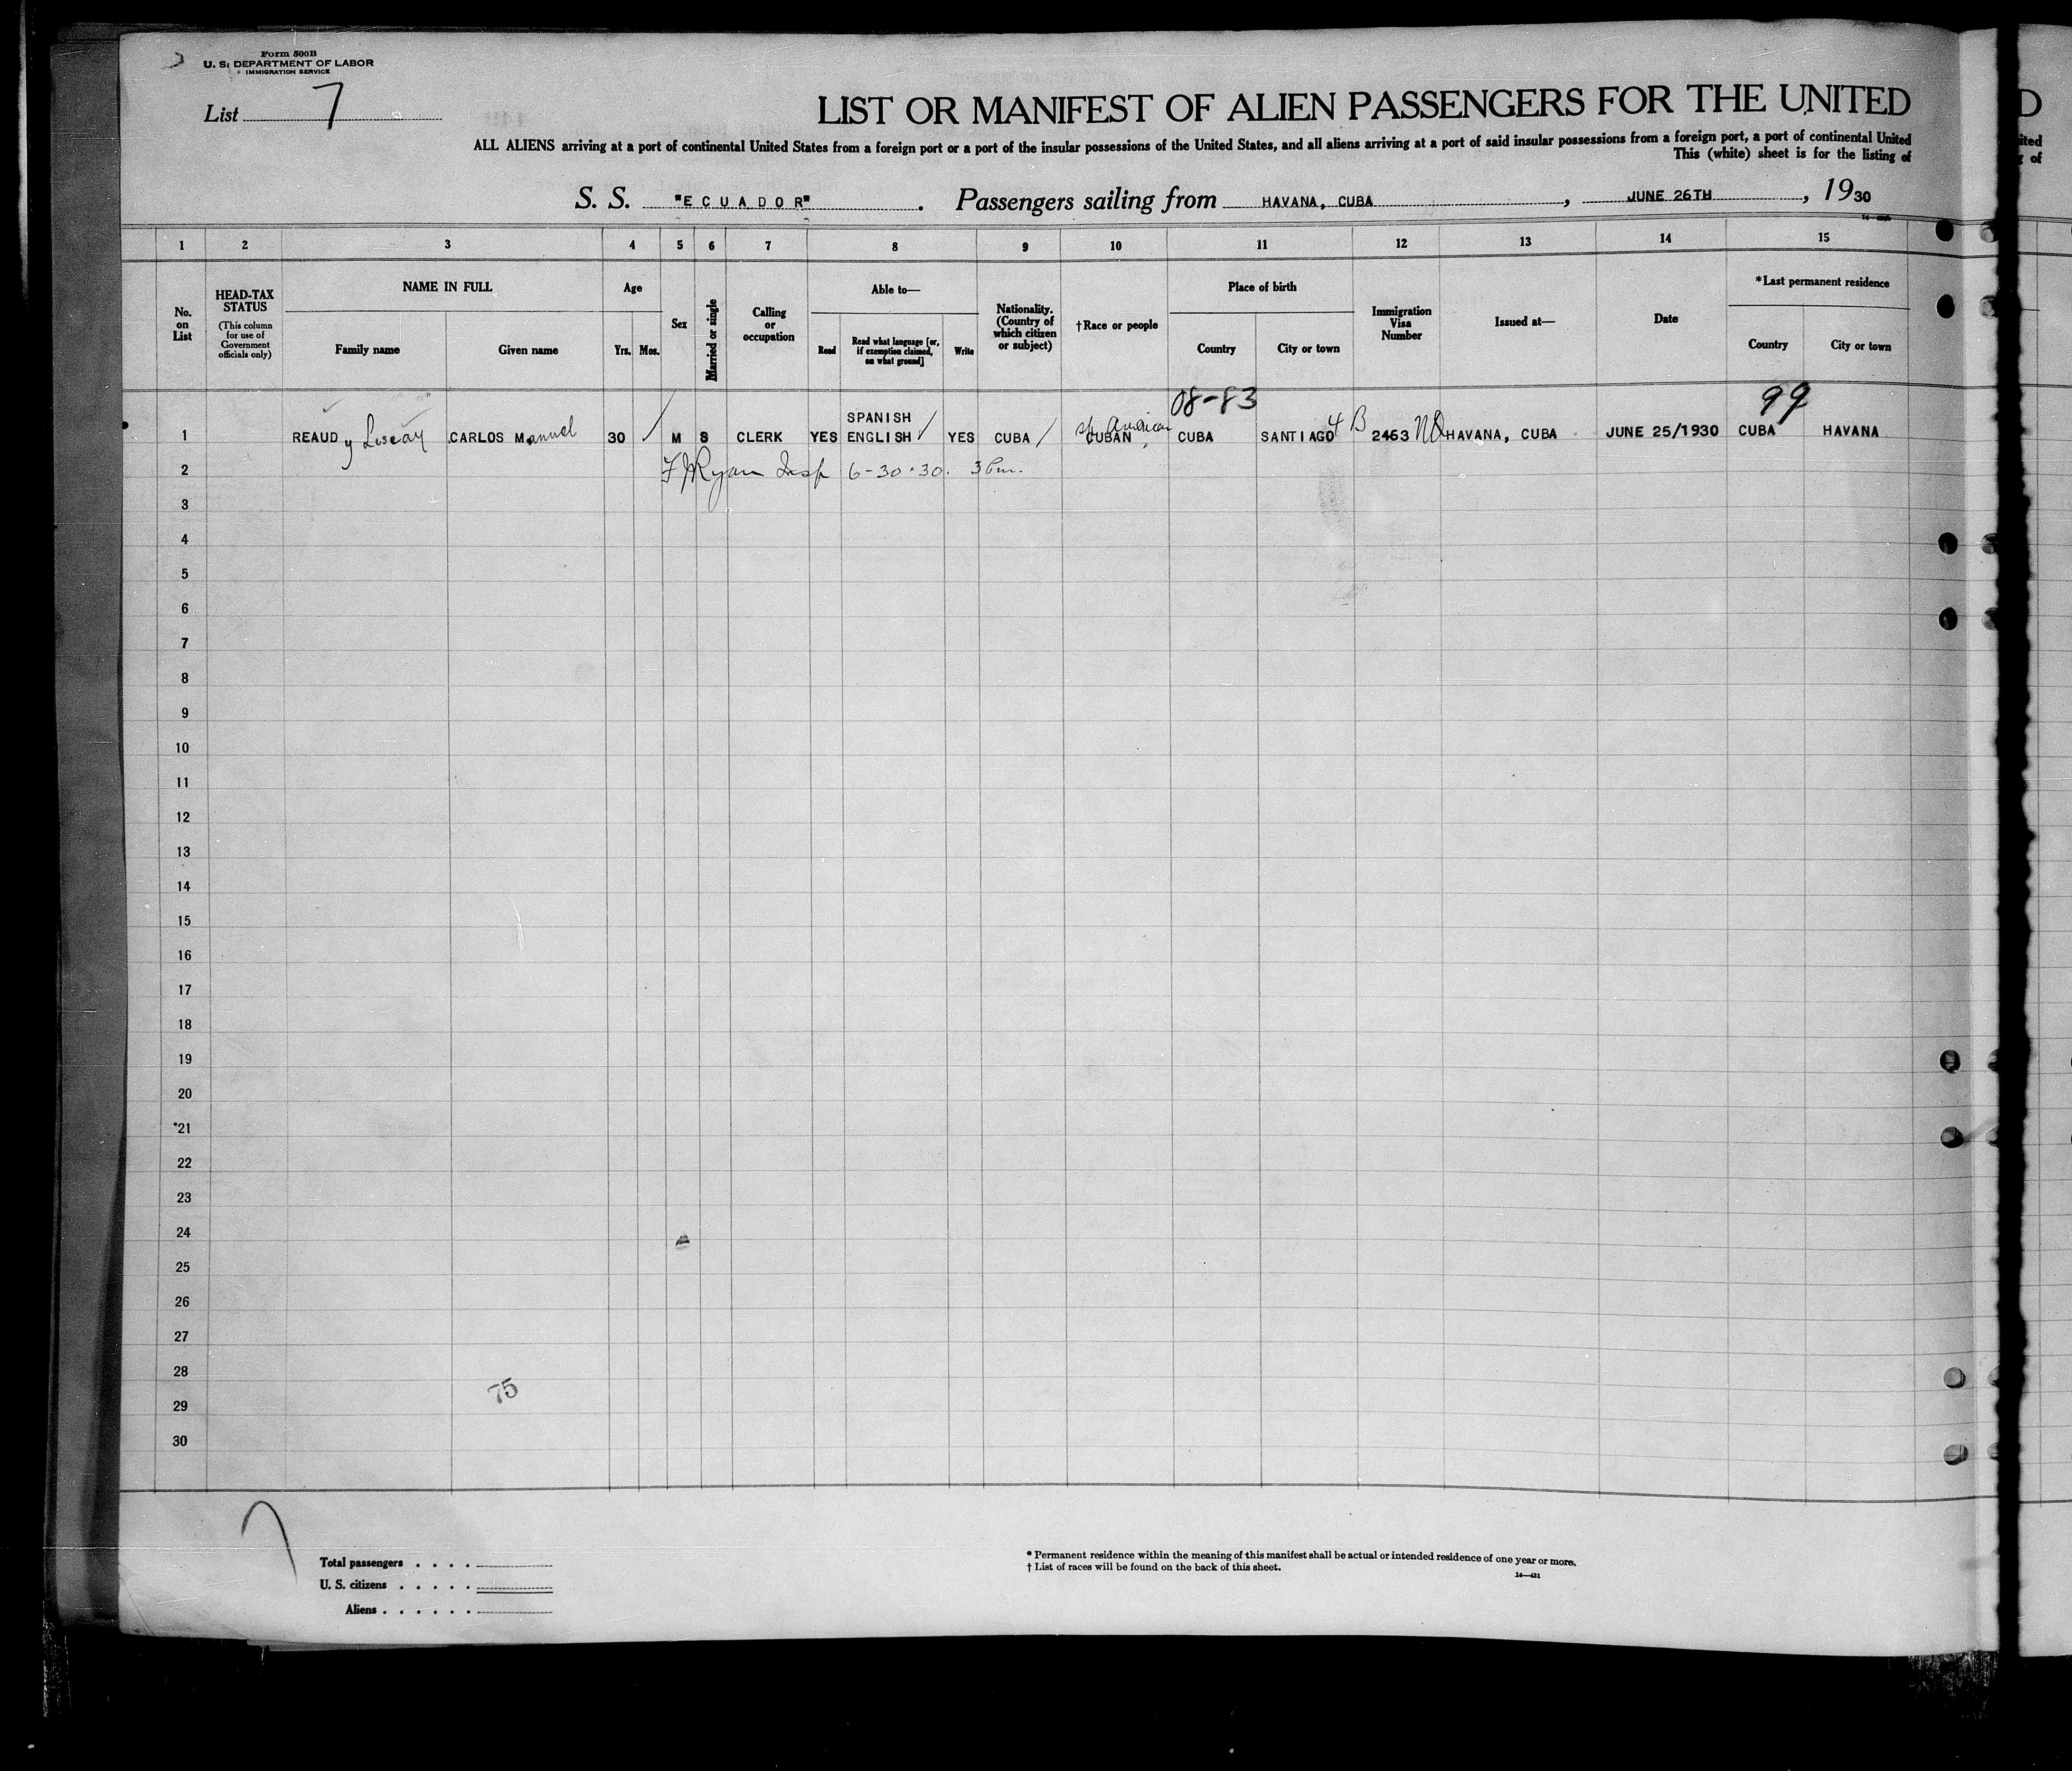 Form 500B
U. S. DEPARTMENT OF LABOR
IMMIGRATION SERVICE
List 7
LIST OR MANIFEST OF ALIEN PASSENGERS FOR THE UNITED
ALL ALIENS arriving at a port of continental United States from a foreign port or a port of the insular possessions of the United States, and all aliens arriving at a port of said insular possessions from a foreign port, a port of continental United
This (white) sheet is for the listing of
S. S. "ECUADOR". Passengers sailing from HAVANA, CUBA, JUNE 26TH, 1930
1 2 3 4 5 6 7 8 9 10 11 12 13 14 15
No. on List
HEAD-TAX STATUS
(This column for use of Government officials only)
NAME IN FULL
Family name Given name
Age
Yrs. Mos.
Sex
Married or single
Calling or occupation
Able to—
Read
Read what language [or, if exemption claimed, on what ground]
Write
Nationality. (Country of which citizen or subject)
†Race or people
Place of birth
Country City or town
Immigration Visa Number
Issued at—
Date
*Last permanent residence
Country City or town
08-83 99
1 REAUD y CARLOS Manuel 30 M S CLERK YES SPANISH ENGLISH YES CUBA CUBAN Sp American CUBA SANTIAGO 4 B 2463 NQ HAVANA, CUBA JUNE 25/1930 CUBA HAVANA
2 Ryan Insp 6-30-30. 3 Pm.
3
4
5
6
7
8
9
10
11
12
13
14
15
16
17
18
19
20
21
22
23
24
25
26
27
28
75
29
30
Total passengers . . . .
U. S. citizens . . . . .
Aliens . . . . . .
* Permanent residence within the meaning of this manifest shall be actual or intended residence of one year or more.
† List of races will be found on the back of this sheet.
D
ited
g of